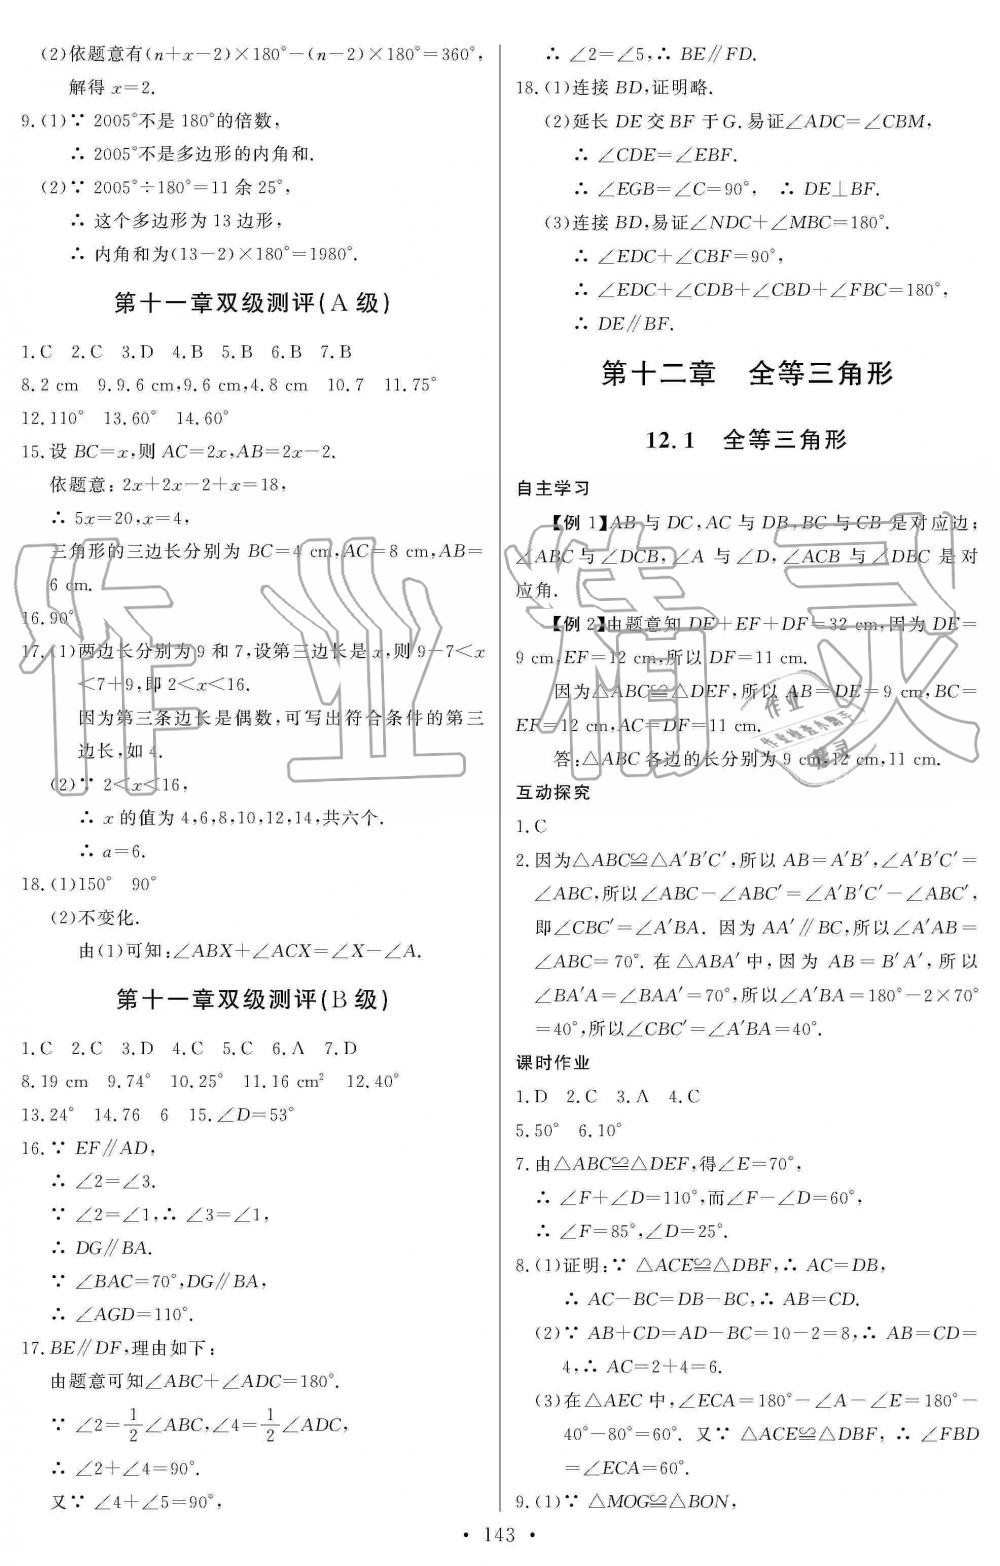 (2)依题意有(n+x−2)×180°−(n−2)×180°=360°,
解得 x=2.
9.(1)∵ 2005°不是 180°的倍数,
∴ 2005°不是多边形的内角和.
(2)∵ 2005°÷180°=11 余 25°,
∴ 这个多边形为 13 边形,
∴ 内角和为(13−2)×180°=1980°.
第十一章双级测评(A 级)
1.C 2.C 3.D 4.B 5.B 6.B 7.B
8.2 cm 9.9.6 cm,9.6 cm,4.8 cm 10.7 11.75°
12.110° 13.60° 14.60°
15.设 BC=x,则 AC=2x,AB=2x−2.
依题意:2x+2x−2+x=18,
∴ 5x=20,x=4,
三角形的三边长分别为 BC=4 cm,AC=8 cm,AB=
6 cm.
16.90°
17.(1)两边长分别为 9 和 7,设第三边长是 x,则 9−7<x
<7+9,即 2<x<16.
因为第三条边长是偶数,可写出符合条件的第三
边长,如 4.
(2)∵ 2<x<16,
∴ x 的值为 4,6,8,10,12,14,共六个.
∴ a=6.
18.(1)150° 90°
(2)不变化.
由(1)可知:∠ABX+∠ACX=∠X−∠A.
第十一章双级测评(B 级)
1.C 2.C 3.D 4.C 5.C 6.A 7.D
8.19 cm 9.74° 10.25° 11.16 cm² 12.40°
13.24° 14.76 6 15.∠D=53°
16.∵ EF∥AD,
∴ ∠2=∠3.
∵ ∠2=∠1,∴ ∠3=∠1,
∴ DG∥BA.
∵ ∠BAC=70°,DG∥BA,
∴ ∠AGD=110°.
17.BE∥DF,理由如下:
由题意可知∠ABC+∠ADC=180°.
∵ ∠2=1/2∠ABC,∠4=1/2∠ADC,
∴ ∠2+∠4=90°.
又∵ ∠4+∠5=90°,
∴ ∠2=∠5,∴ BE∥FD.
18.(1)连接 BD,证明略.
(2)延长 DE 交 BF 于 G.易证∠ADC=∠CBM,
∴ ∠CDE=∠EBF.
∴ ∠EGB=∠C=90°, ∴ DE⊥BF.
(3)连接 BD,易证∠NDC+∠MBC=180°.
∴ ∠EDC+∠CBF=90°,
∴ ∠EDC+∠CDB+∠CBD+∠FBC=180°,
∴ DE∥BF.
第十二章 全等三角形
12.1 全等三角形
自主学习
【例 1】AB 与 DC,AC 与 DB,BC 与 CB 是对应边;
∠ABC 与∠DCB,∠A 与∠D,∠ACB 与∠DBC 是对
应角.
【例 2】由题意知 DE+EF+DF=32 cm,因为 DE=
9 cm,EF=12 cm,所以 DF=11 cm.
因为△ABC≌△DEF,所以 AB=DE=9 cm,BC=
EF=12 cm,AC=DF=11 cm.
答:△ABC 各边的长分别为 9 cm,12 cm,11 cm.
互动探究
1.C
2.因为△ABC≌△A′B′C′,所以 AB=A′B′,∠A′B′C′=
∠ABC,所以∠ABC−∠ABC′=∠A′B′C′−∠ABC′,
即∠CBC′=∠A′BA. 因为 AA′∥BC,所以∠A′AB=
∠ABC=70°. 在△ABA′中,因为 AB=B′A′,所以
∠BA′A=∠BAA′=70°,所以∠A′BA=180°−2×70°
=40°,所以∠CBC′=∠A′BA=40°.
课时作业
1.D 2.C 3.A 4.C
5.50° 6.10°
7.由△ABC≌△DEF,得∠E=70°,
∴ ∠F+∠D=110°,而∠F−∠D=60°,
∴ ∠F=85°,∠D=25°.
8.(1)证明:∵ △ACE≌△DBF,∴ AC=DB,
∴ AC−BC=DB−BC,∴ AB=CD.
(2)∵ AB+CD=AD−BC=10−2=8,∴ AB=CD=
4,∴ AC=2+4=6.
(3)在△AEC 中,∠ECA=180°−∠A−∠E=180°−
40°−80°=60°. 又∵ △ACE≌△DBF, ∴ ∠FBD
=∠ECA=60°.
9.(1)∵ △MOG≌△BON,
• 143 •
作业精灵